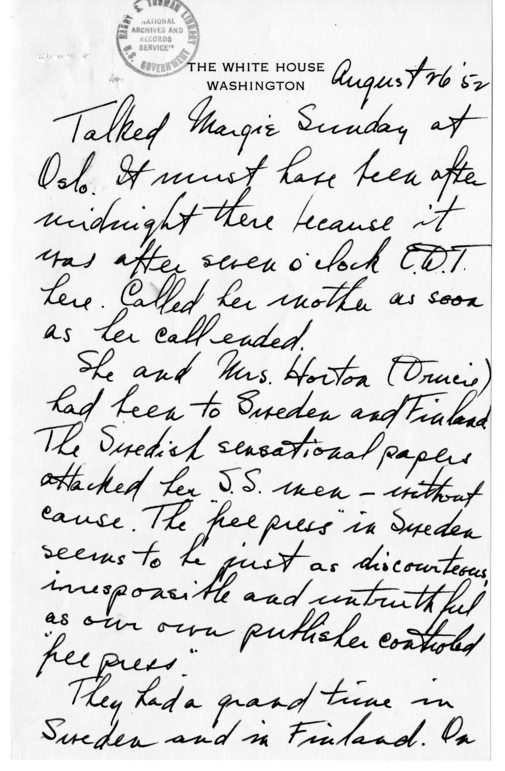 HARRY S. TRUMAN LIBRARY
NATIONAL
ARCHIVES AND
RECORDS
SERVICE
U.S. GOVERNMENT
THE WHITE HOUSE
WASHINGTON
August 26 '52
Talked Margie Sunday at
Oslo. It must have been after
midnight there because it
was after seven o'clock E.D.T.
here. Called her mother as soon
as her call ended.
She and Mrs. Horton (Drucie)
had been to Sweden and Finland
The Swedish sensational papers
attacked her S.S. men – without
cause. The "free press" in Sweden
seems to be just as discourteous,
irresponsible and untruthful
as our own publisher controled
"free press."
They had a grand time in
Sweden and in Finland. On